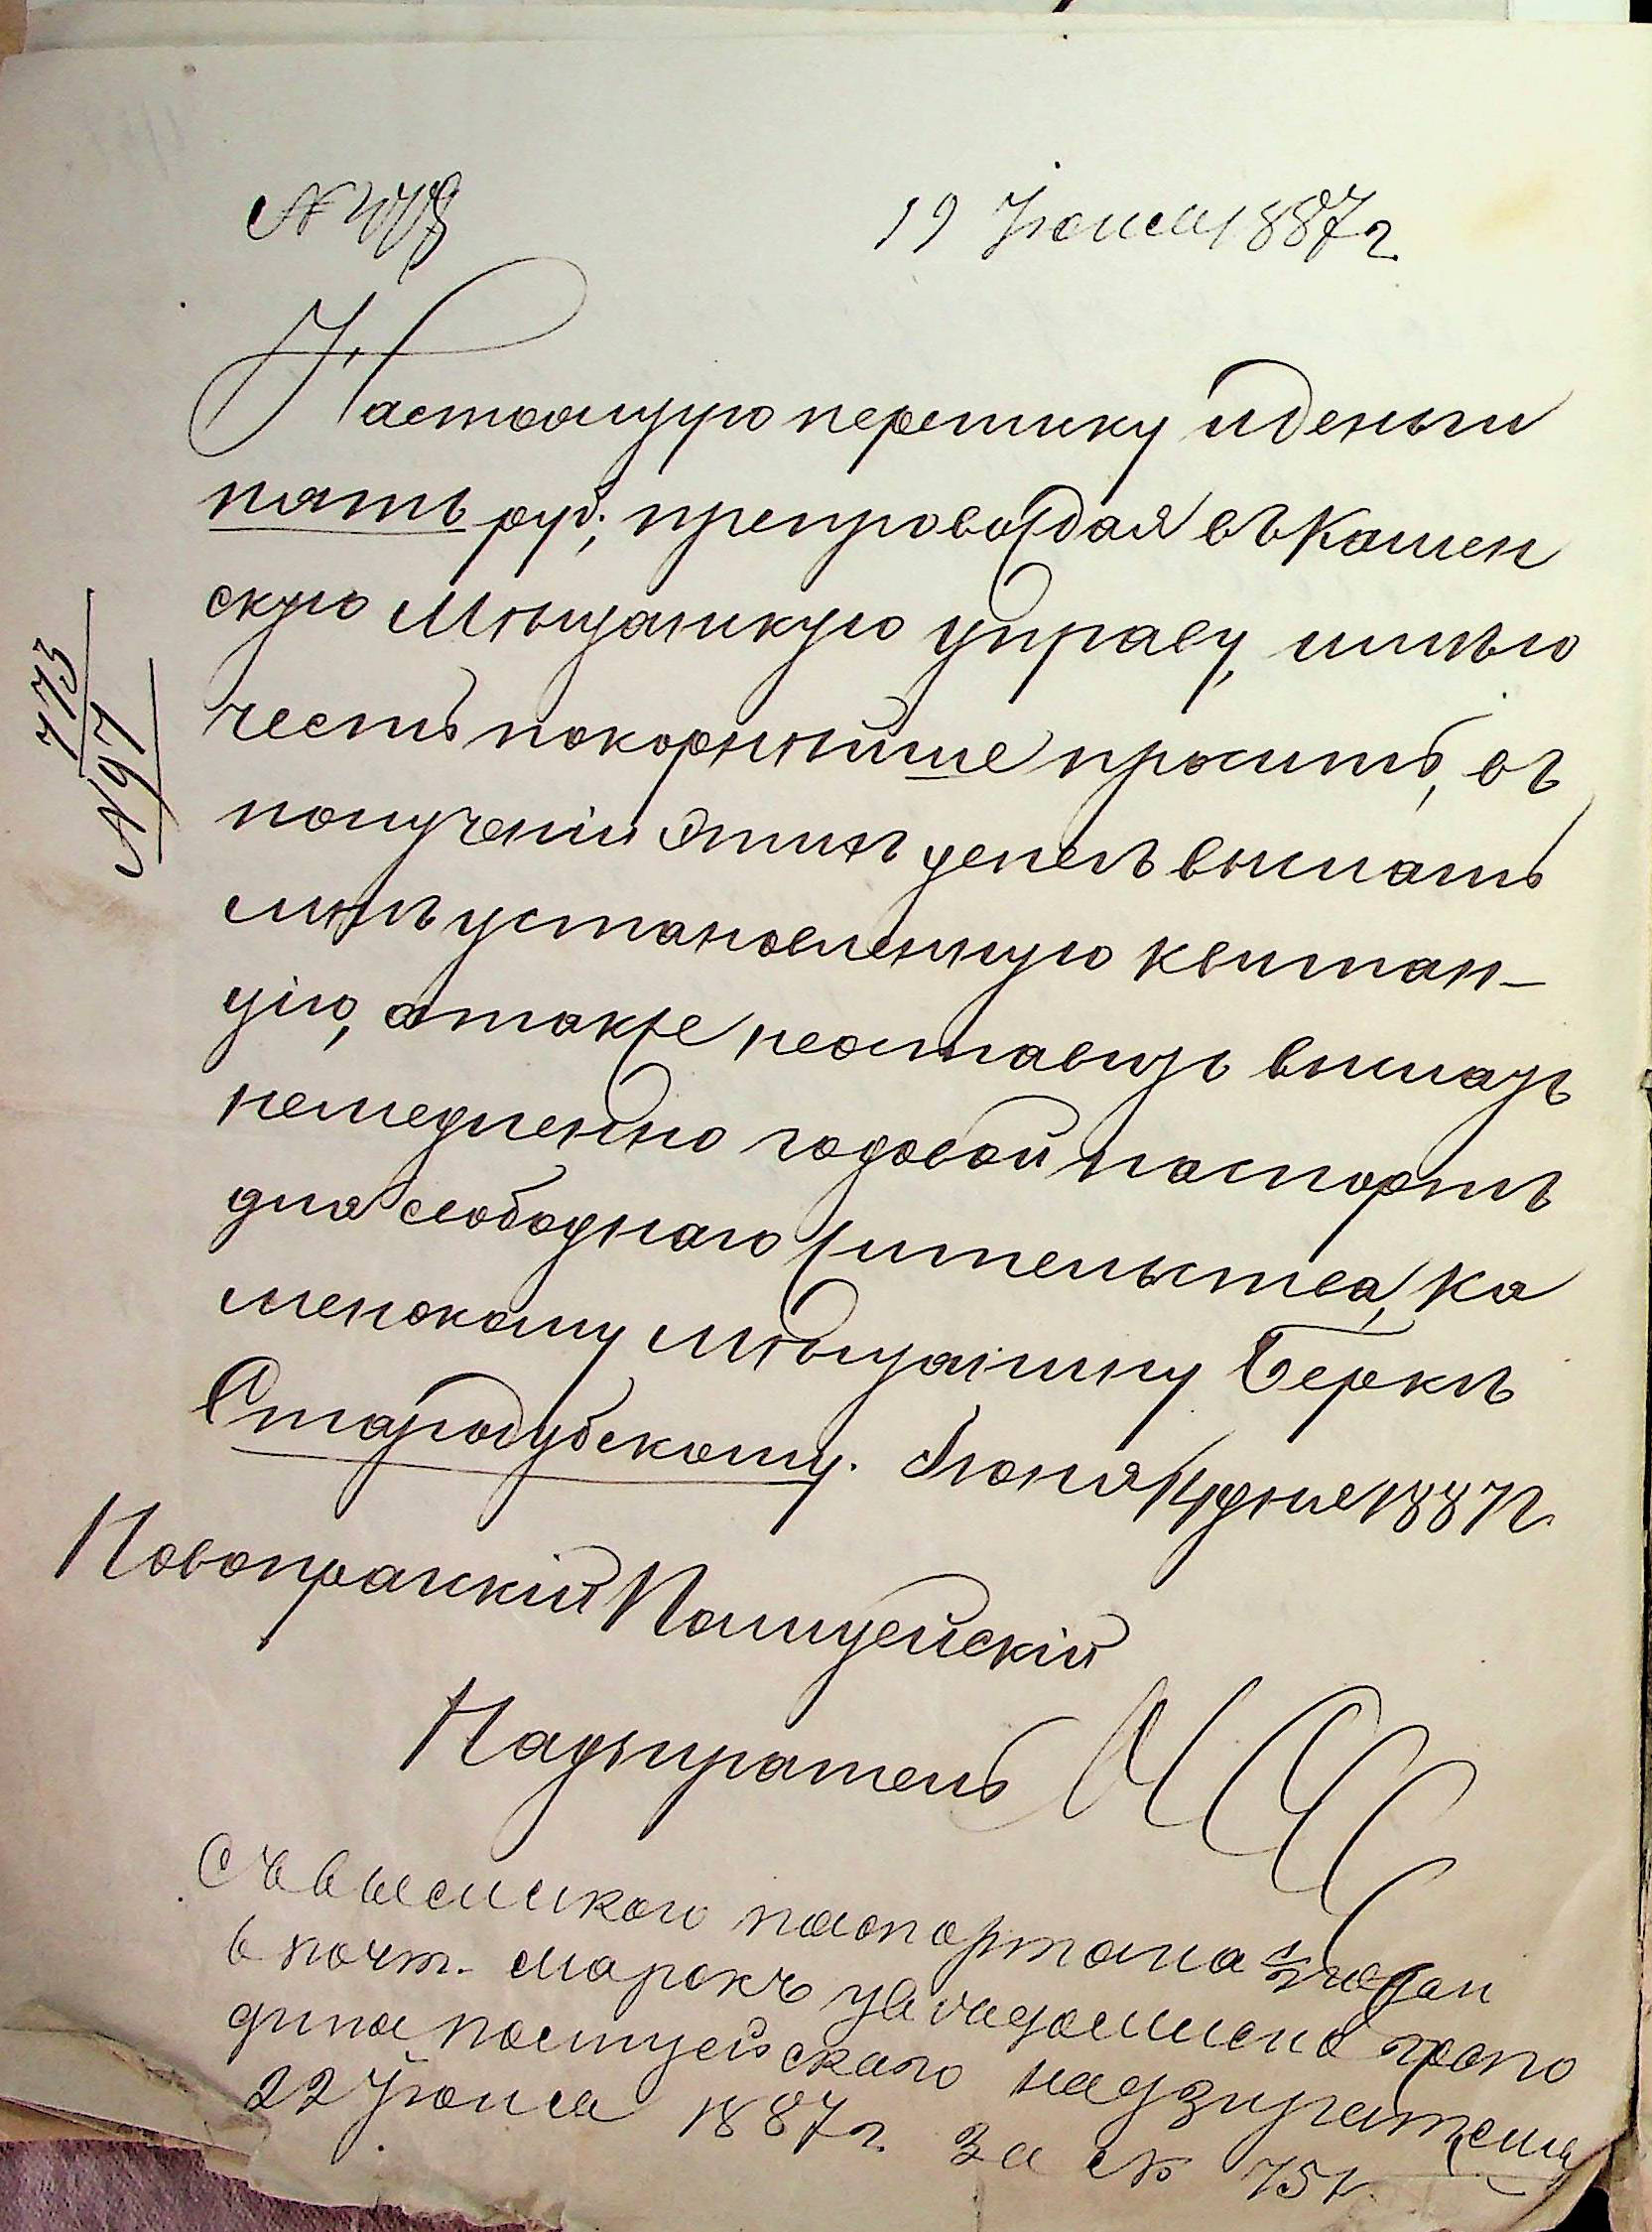 № 778
19 Іюня 1887 г.
Настоящую переписку и деньги
пять руб; препровождая въ Камен
скую Мѣщанскую управу, имѣю
честь покорнѣйше просить, въ
полученіи этихъ денегъ выслать
мнѣ установленную квитан-
цію, а также неоставить выслать
немедленно годовой паспортъ
для свободнаго жительства, Ка
менскому мѣщанину Беркѣ
Стародубскому. Іюня 14 дня 1887 г.
773
№ 97
Новопражскій Полицейскій
Надзиратель
Съ высылкою паспорта на
в почт. марокъ увѣдомлено
полицейскаго надзирателя
22 Іюня 1887 г. за № 751